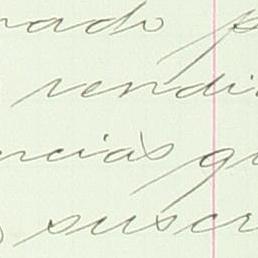 nado p
rendi
ncias qu
suscr